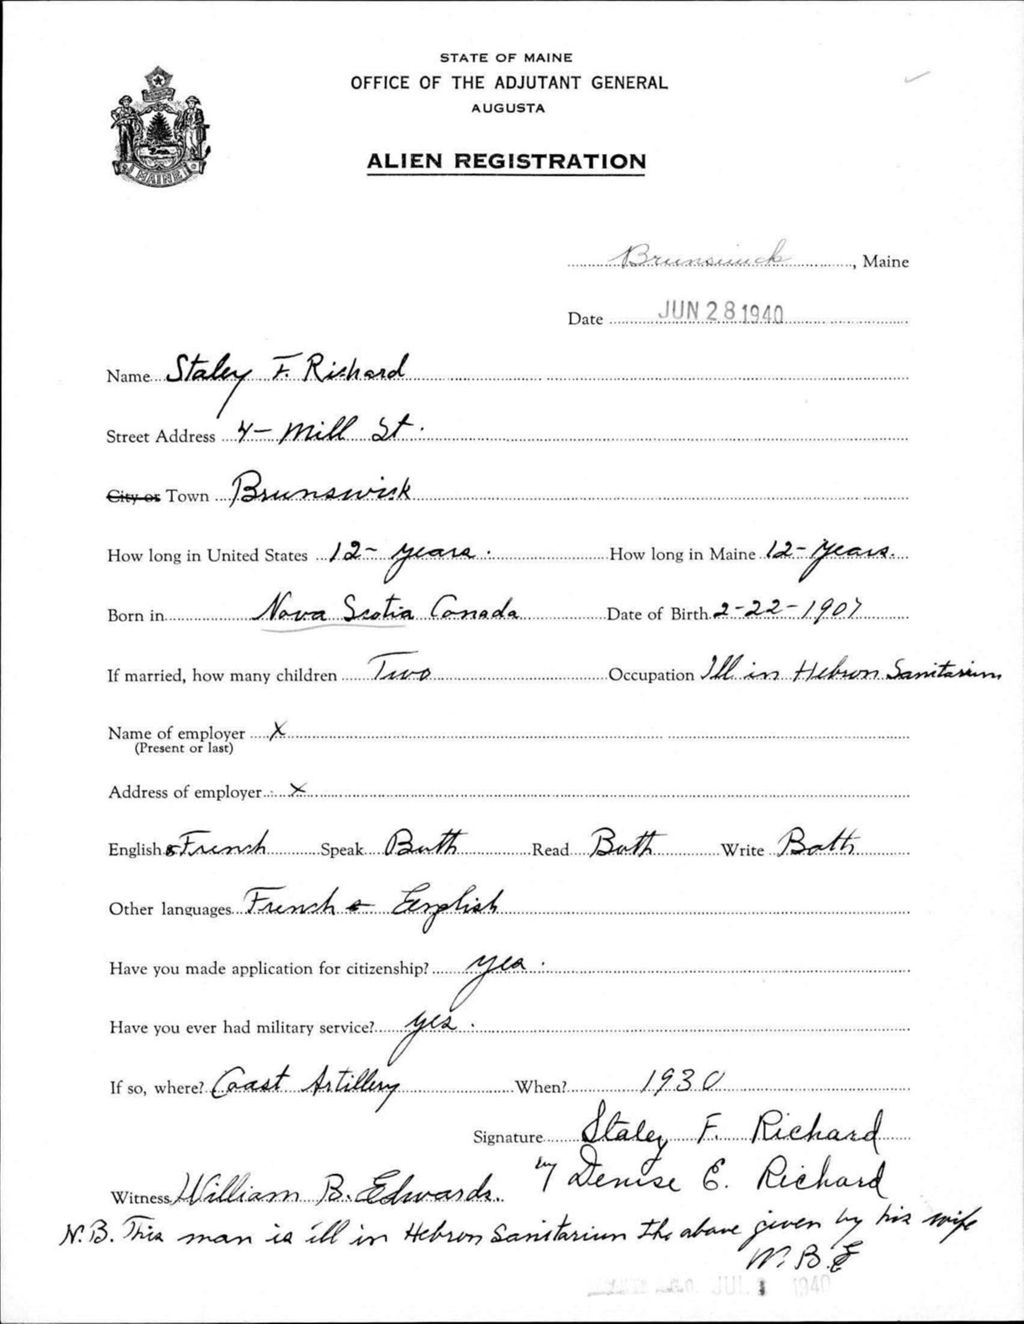 STATE OF MAINE
OFFICE OF THE ADJUTANT GENERAL
AUGUSTA
ALIEN REGISTRATION
MAINE
Brunswick, Maine
Date JUN 28 1940
Name Staley F. Richard
Street Address 4- Mill St.
City or Town Brunswick
How long in United States 12- years. How long in Maine 12- Years.
Born in Nova Scotia Canada Date of Birth 2-22-1907
If married, how many children Two Occupation Ill in Hebron Sanitarium
Name of employer X
(Present or last)
Address of employer X
English & French Speak Both Read Both Write Both
Other languages French & English
Have you made application for citizenship? yes.
Have you ever had military service? yes.
If so, where? Coast Artillery When? 1930
Signature Staley F. Richard
by Denise E. Richard
Witness William B. Edwards.
N.B. This man is ill in Hebron Sanitarium The above given by his wife
W.B.E
JUL 1940